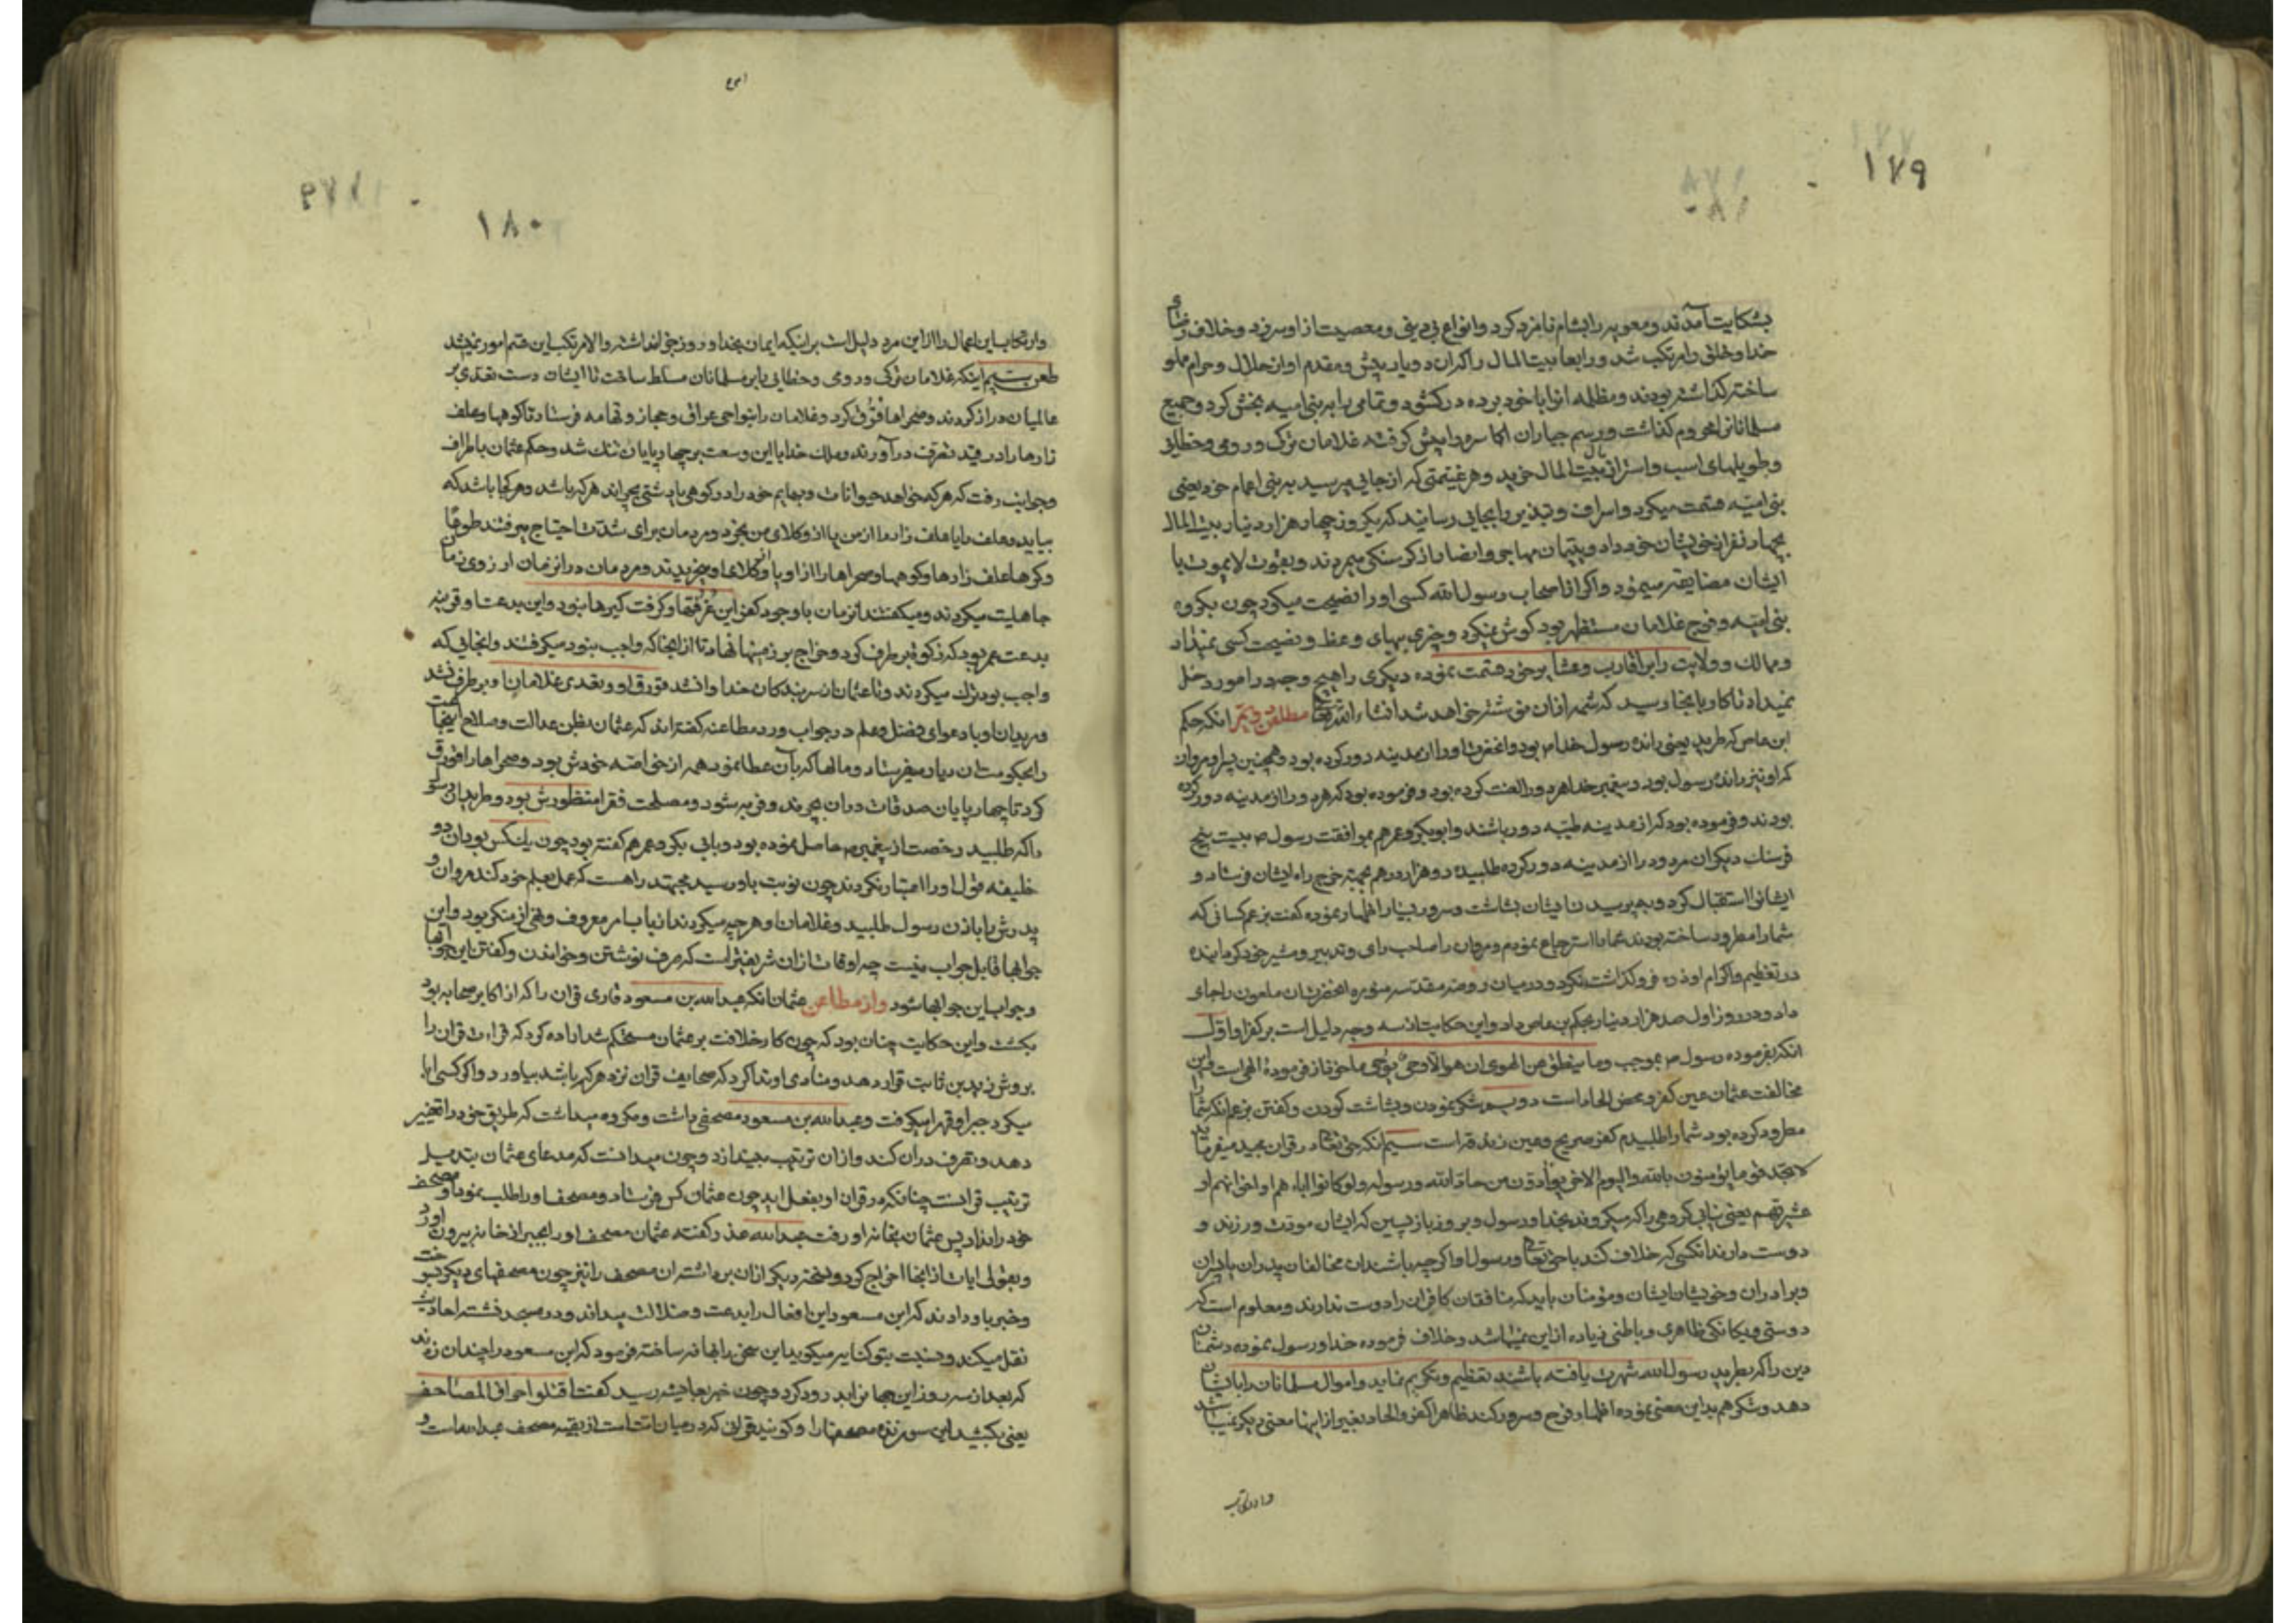 ۱۷۹
بشکایت آمدند و معویه را بشام نامزد کرد و انواع بی دینی و معصیت از او سر زد و خلاف رضای
خدا و خلق را مرتکب شد و رابعا بیت المال را که ان دو یار پیش و مقدم او ان حلال و حرام مملو
ساخته گذاشته بودند و مظلمه انرا با خود برده در کشود و تمامی را بر بنی امیه بخش کرد و جمیع
مسلمانانرا محروم گذاشت و رسم جباران اکاسره را پیش گرفته غلامان ترک و رومی و خطایی
و طویلهای اسب و استر از بیت المال خرید و هر غنیمتی که از جایی میرسید به بنی اعمام خود یعنی
بنی امیه قسمت میکرد و اسراف و تبذیر را بجایی رسانید که یکروز چهار هزار دینار بیت المال
بچهار نفر از خویشان خود داد و یتیمان مهاجر و انصار از کرسنگی میمردند و بقوت لایموت با
ایشان مضایقه مینمود و اگر از اصحاب رسول الله کسی او را نصیحت میکرد چون بکروه
بنی امیه و فوج غلامان مستظهر بود کوش نمیکرد و چیزی بهای وعظ و نصیحت کسی نمیداد
و ممالک و ولایت را بر اقارب و عشایر خود قسمت نموده دیگری را بهیچ وجه در امور دخل
نمیداد تا کار بانجا رسید که شمه ازان نوشته خواهد شد انشاء الله تعالی مطلب دیگر انکه حکم
ابن عاص که طرید یعنی رانده رسول خدا ص بود و انحضرت او را از مدینه دور کرده بود و همچنین پسر او مروان
که او نیز رانده رسول بود و پیغمبر خدا هر دو را لعنت کرده بود و فرموده بود که هر دو را از مدینه دور کرده
بودند و فرموده بود که از مدینه طیبه دور باشند و ابوبکر و عمر هم بموافقت رسول ص بیست پنج
فرسنک دیکر ان مردود را از مدینه دور کرده طلبیده دو هزار درهم بجهة خرج راه ایشان فرستاد و
ایشانرا استقبال کرد و بعد پرسیدن ایشان بشاشت و سرور بسیار اظهار نموده کفت بزعم کسانی که
شما را مطرود ساخته بودند شما را استرجاع نمودم و مروان را صاحب رای و تدبیر و مشیر خود کردانیده
در تعظیم و اکرام او ذره فروگذاشت نکرد و در میان روضه مقدسه منوره انحضرت ان ملعون را جای
داد و در روز اول صد هزار دینار بحکم بن عاص داد و این حکایت از سه وجه دلیل است بر کفر او اول
انکه بفرموده رسول ص بموجب وما ینطق عن الهوی ان هو الا وحی یوحی ماخوذ از فرمودهٔ الهی است و این
مخالفت عثمان عین کفر و محض الحاد است دویم شکر نمودن و بشاشت کردن و کفتن بزعم انکه شما را
مطرود کرده بود شما را طلبیدم کفر صریح و عین زندقه است سیم انکه حق تعالی در قران مجید میفرماید
لا تجد قوما یؤمنون بالله والیوم الاخر یوادون من حاد الله ورسوله ولو کانوا اباءهم او اخوانهم او
عشیرتهم یعنی نیابی کروهی را که میکروند بخدا و رسول و بروز بازپسین که ایشان مودت ورزند و
دوست دارند انکسی که خلاف کند با حق تعالی و رسول او اگر چه باشند ان مخالفان پدران یا پسران
و برادران و خویشان ایشان و مؤمنان باید که منافقان کافران را دوست ندارند و معلوم است که
دوستی و یکانکی ظاهری و باطنی زیاده از این نمیباشد و خلاف فرموده خدا و رسول نموده دشمنان
دین را که بطرید رسول الله شهرت یافته باشند تعظیم و تکریم نماید و اموال مسلمانان را بایشان
دهد و شکر هم بر این معنی نموده اظهار فرح و سرور کند ظاهرا کفر و الحاد بغیر از اینها معنی دیکر نمیباشد
و ارتکاب
۱۸۰
و ارتکاب این اعمال را از این مرد دلیل است بر اینکه ایمان بخدا و روز جزا نداشته و الا مرتکب این قسم امور نمیشد
طعن سیم اینکه غلامان ترک و رومی و خطایی را بر مسلمانان مسلط ساخت تا ایشان دست تعدی بر
عالمیان دراز کردند و صحراها قرق کرد و غلامان را بنواحی عراق و حجاز و تهامه فرستاد تا کوهها و علف
زارها را در قید تصرف در آورند و ملک خدا با این وسعت بر چهارپایان تنک شد و حکم عثمان باطراف
و جوانب رفت که هر که خواهد حیوانات و بهایم خود را در کوهی یا دشتی بچراند هر که باشد و هر کجا باشد که
بیاید و علف را یا علف زار را از من یا از وکلای من بخرد و مردمان برای شدت احتیاج میرفتند طوعا
و کرها علف زارها و کوهها و صحراها را از او یا از وکلای او میخریدند و مردمان دران زمان ارزوی زمان
جاهلیت میکردند و میکفتند انزمان با وجود کفر این قرقها و گرفت کیرها نبود و این بدعت او قرینه
بدعت عمر بود که زکوة بر طرف کرد و خراج بر زمینها نهاد تا از انجا که واجب نبود میکرفتند و انجایی که
واجب بود ترک میکردند و تا عثمان از سر بندکان خدا وا نشد قورق او و تعدی غلامان او بر طرف نشد
مریدان او با دعوای فضل و علم در جواب ورد مطاعنه کفته اند که عثمان بظن عدالت و صلاح این جماعت
را بحکومت ان دیار میفرستاد و مالها که بآن عطا نمود همه از خواصه خودش بود و صحراها را قورق
کرد تا چهارپایان صدقات دران بچرند و فربه شود و مصلحت فقرا منظورش بود و طریدان رسول
را که طلبید رخصت از پیغمبر ص حاصل نموده بود و بابی بکر و عمر هم کفته بود چون یک کس بود ان دو
خلیفه قول او را اعتبار نکردند چون نوبت باو رسید مجتهد راهست که عمل بعلم خود کند مروان و
پدرش را باذن رسول طلبید و غلامان او هر چه میکردند از باب امر معروف و نهی از منکر بود و این
جوابها قابل جواب نیست چه اوقات ازان شریفتر است که صرف نوشتن و خواندن و کفتن این جوابها
و جواب این جوابها شود و از مطاعن عثمان انکه عبدالله بن مسعود قاری قران را که از اکابر صحابه بود
بکشت و این حکایت چنان بود که چون کار خلافت بر عثمان مستحکم شد اراده کرد که قراءت قران را
بروش زید بن ثابت قرار دهد و منادی او ندا کرد که صحایف قران نزد هر که باشد بیاورد و اگر کسی ابا
میکرد جبرا و قهرا میکرفت و عبدالله بن مسعود مصحفی داشت و مکروه میداشت که طریق خود را تغییر
دهد و تصرف دران کند و ازان ترتیب بیندازد و چون میدانست که مدعای عثمان تبدیل
ترتیب قرانست چنانکه در قران او بفعل اید چون عثمان کس فرستاد و مصحف او را طلب نمود او مصحف
خود را نداد پس عثمان بخانه او رفت عبدالله عذر گفته عثمان مصحف او را بجبر از خانه بیرون اورد
و بقولی ایات از انجا اخراج کرد و نسخه دیکر ازان برداشته ان مصحف را نیز چون مصحفهای دیکر بسوخت
و خبر باو دادند که ابن مسعود این افعال را بدعت و ضلالت میداند و در مسجد نشسته احادیث
نقل میکند و نسبت بتو کنایه میکوید این سخن را بهانه ساخته فرمود که ابن مسعود را چندان زدند
که بعد از سه روز این جهانرا بدرود کرد و چون خبر بعایشه رسید کفت اقتلوا حراق المصاحف
یعنی بکشید این سوزنده مصحفها را و کویند قرانی که در میان امت است از بقیه مصحف عبدالله است و